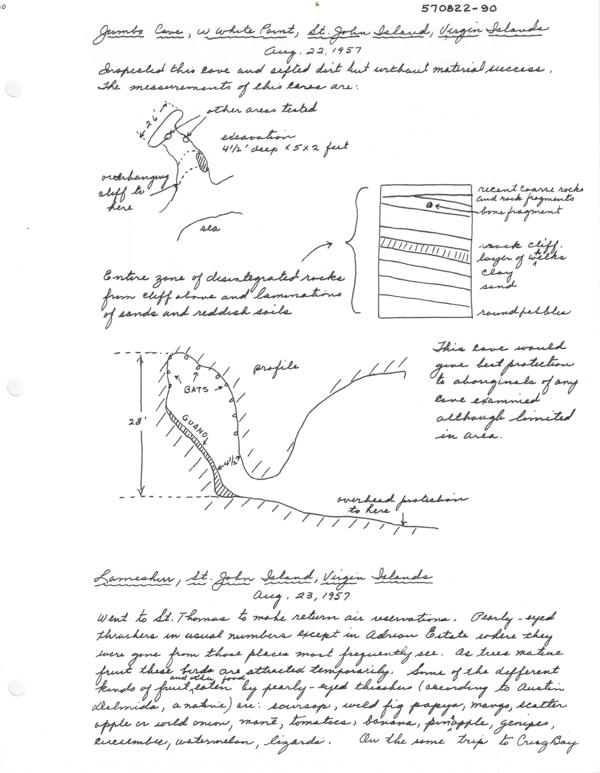 570822-90
Jumbo Cave, W White Point, St. John Island, Virgin Islands
Aug. 22, 1957
Inspected this cave and sifted dirt but without material success.
The measurements of this cave are:
26'
other areas tested
excavation
4½' deep x 5 x 2 feet
overhanging
cliff to
here
sea
recent coarse rocks
and rock fragments
bone fragment
rock cliff.
layer of welks
clay
sand
round pebbles
Entire zone of disintegrated rocks
from cliff above and laminations
of sands and reddish soils
profile
BATS
28'
GUANO
4½'
This cave would
give best protection
to aboriginals of any
cave examined
although limited
in area.
overhead protection
to here
Lameshur, St. John Island, Virgin Islands
Aug. 23, 1957
Went to St. Thomas to make return air reservations. Pearly-eyed
thrashers in usual numbers except in Adrian Estate where they
were gone from those places most frequently see. As trees mature
fruit these birds are attracted temporarily. Some of the different
kinds of fruit and other food eaten by pearly-eyed thrasher (according to Austin
Dalmida, a native) are: soursop, wild fig papya, mango, scatter
apple or wild onion, mont, tomatoes, banana, pineapple, genipes,
cucumber, watermelon, lizards. On the same trip to Cruz Bay